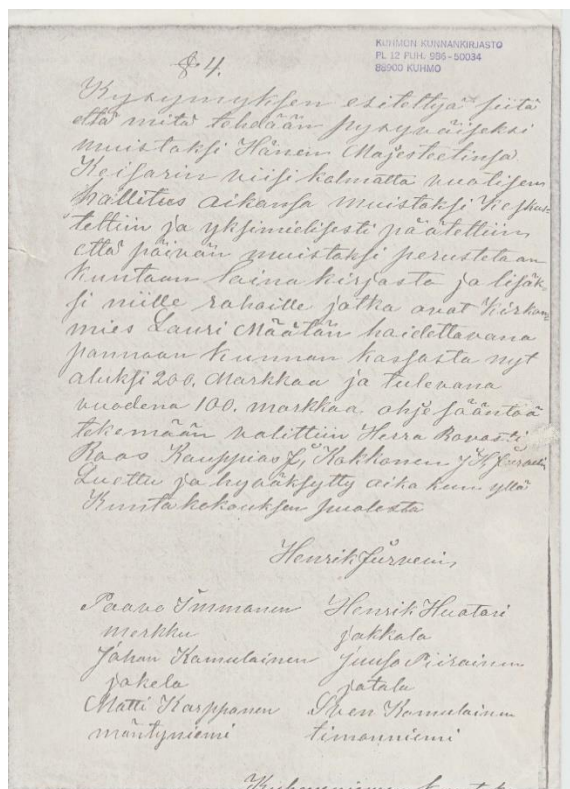 KUHMON KUNNANKIRJASTO
PL 12 PUH. 986-50034
88900 KUHMO
§ 4.
Kysymyksen esitettyä siitä
että mitä tehdään pysyväiseksi
muistoksi Hänen Majesteetinsa
Keisarin viisi kolmatta vuotisen
hallitus aikansa muistoksi keskus-
teltiin ja yksimielisesti päätettiin
että päivän muistoksi perustetaan
kuntaan laina kirjasto ja lisäk-
si niille rahoille jotka ovat Kirkon
mies Lauri Määtän hoidettavana
pannaan kunnan kassasta nyt
aluksi 200. Markkaa ja tulevana
vuodena 100. markkaa. ohje sääntöä
tekemään valittiin Herra Rovasti
Roos Kauppias J, Kokkonen
Luettu ja hyväksytty aika kuin yllä
Kuntakokouksen puolesta
Henrik
Paavo Immonen Henrik Huotari
merkku jakkala
Johan Komulainen Juuso Piirainen
jokela jatala
Matti Karppanen Sven Komulainen
mäntyniemi timonniemi